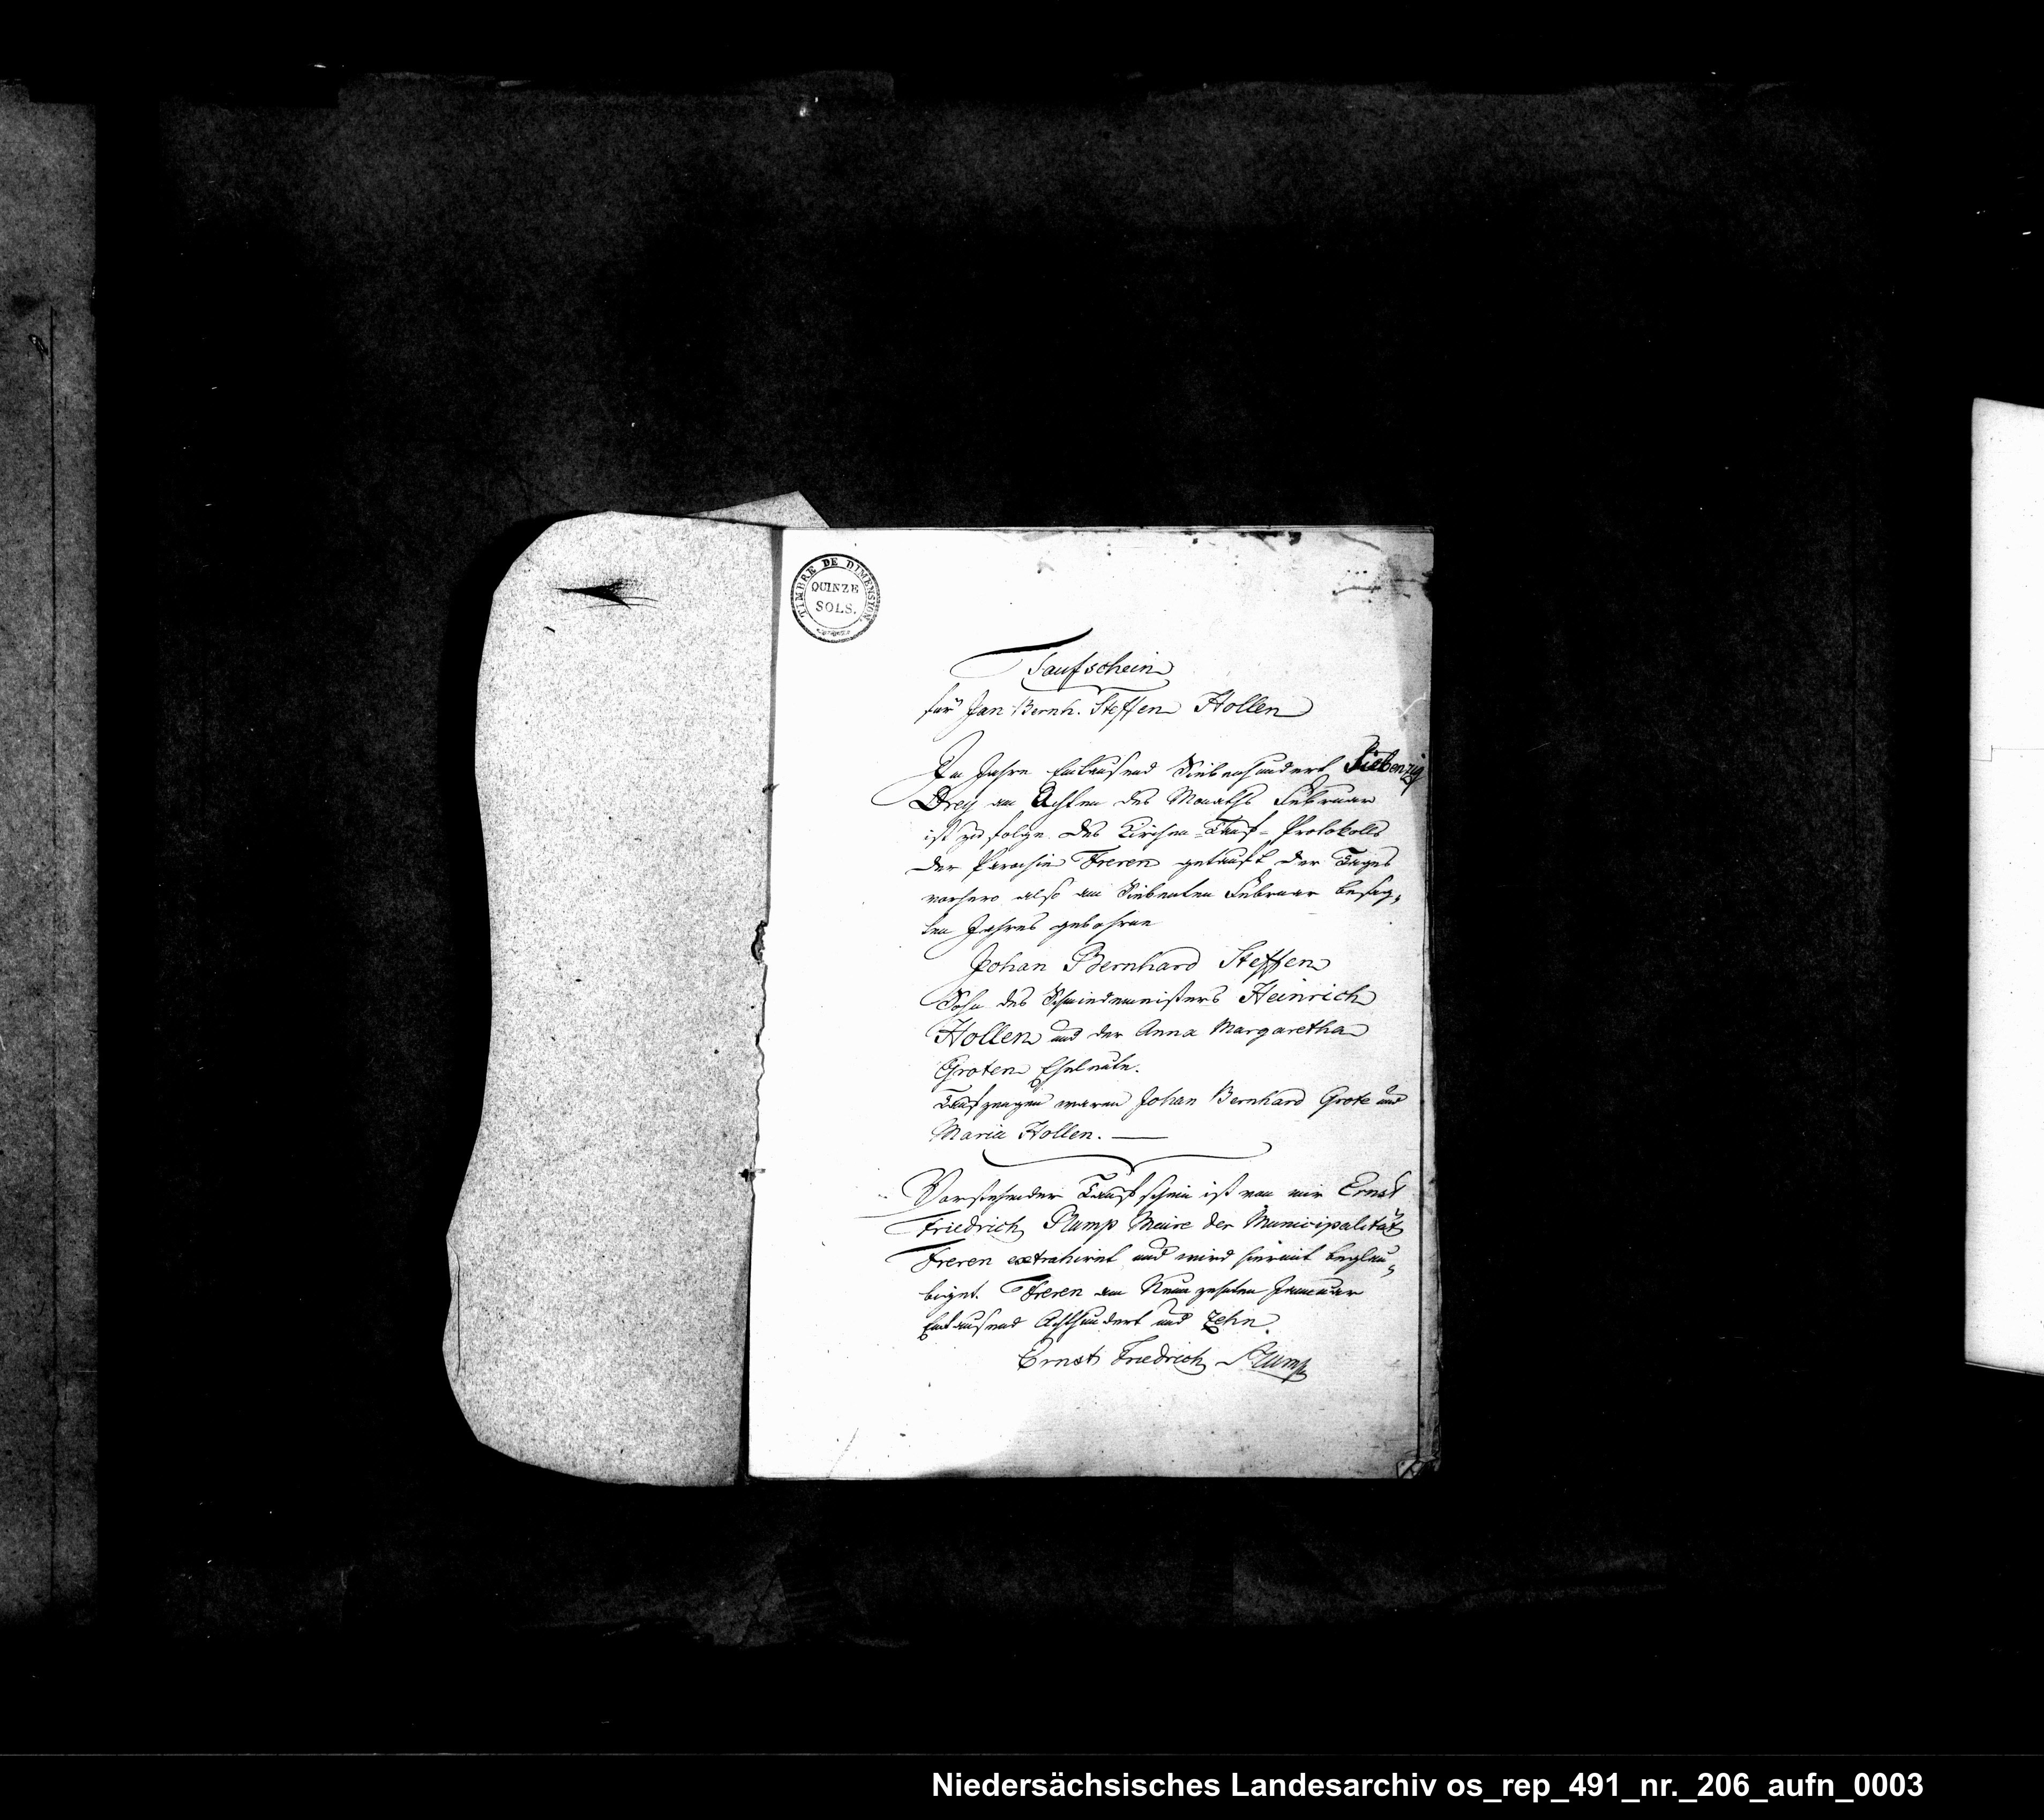 TIMBRE DE DIMENSION.
QUINZE
SOLS.
Taufschein
für Jan Bernh. Steffen Hollen
Im Jahre Eintausend Siebenhundert Siebenzig
Drey am Achten des Monaths Februar
ist zu folge des Kirchen-Tauf-Protokolls
der Parochie Freren getauft der Tages
vorhero also am Siebenten Februar besag-
ten Jahres gebohrne
Johan Bernhard Steffen
Sohn des Schmiedemeisters Heinrich
Hollen und der Anna Margaretha
Groten Eheleute.
Taufzeugen waren Johan Bernhard Grote und
Maria Hollen. —
Vorstehender Taufschein ist von mir Ernst
Friedrich Rump Maire der Municipalität
Freren extrahiret und wird hiermit beglau-
biget. Freren am Neunzehnten Januar
Eintausend Achthundert und Zehn.
Ernst Friedrich Rump
Niedersächsisches Landesarchiv os_rep_491_nr._206_aufn_0003